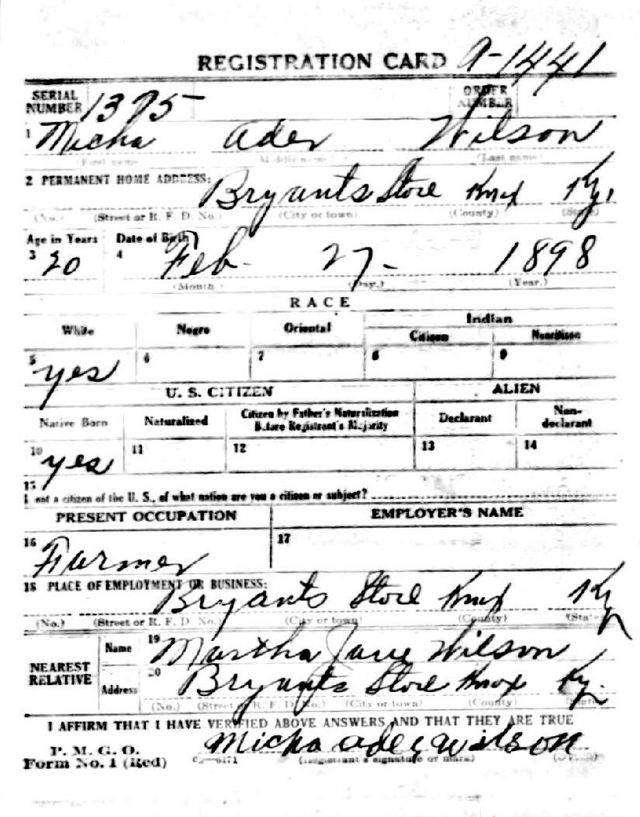 REGISTRATION CARD A-1441
SERIAL NUMBER 1375 ORDER NUMBER
1 Micha Ader Wilson
(First name) (Middle name) (Last name)
2 PERMANENT HOME ADDRESS: Bryants Store Knox Ky.
(No.) (Street or R. F. D. No.) (City or town) (County) (State)
Age in Years Date of Birth
3 20 4 Feb. 27 - 1898
(Month.) (Day.) (Year.)
RACE
White Negro Oriental Indian
Citizen Noncitizen
5 yes 6 7 8 9
U. S. CITIZEN ALIEN
Native Born Naturalized Citizen by Father's Naturalization Before Registrant's Majority Declarant Non-declarant
10 yes 11 12 13 14
15
f not a citizen of the U. S., of what nation are you a citizen or subject?
PRESENT OCCUPATION EMPLOYER'S NAME
16 Farmer 17
18 PLACE OF EMPLOYMENT OR BUSINESS:
Bryants Store Knox Ky
(No.) (Street or R. F. D. No.) (City or town) (County) (State)
NEAREST RELATIVE Name 19 Martha Jane Wilson
Address 20 Bryants Store Knox Ky.
(No.) (Street or R. F. D. No.) (City or town) (County) (State)
I AFFIRM THAT I HAVE VERIFIED ABOVE ANSWERS AND THAT THEY ARE TRUE
P. M. G. O.
Form No. 1 (Red) Micha Ader Wilson
(Registrant's signature or mark)